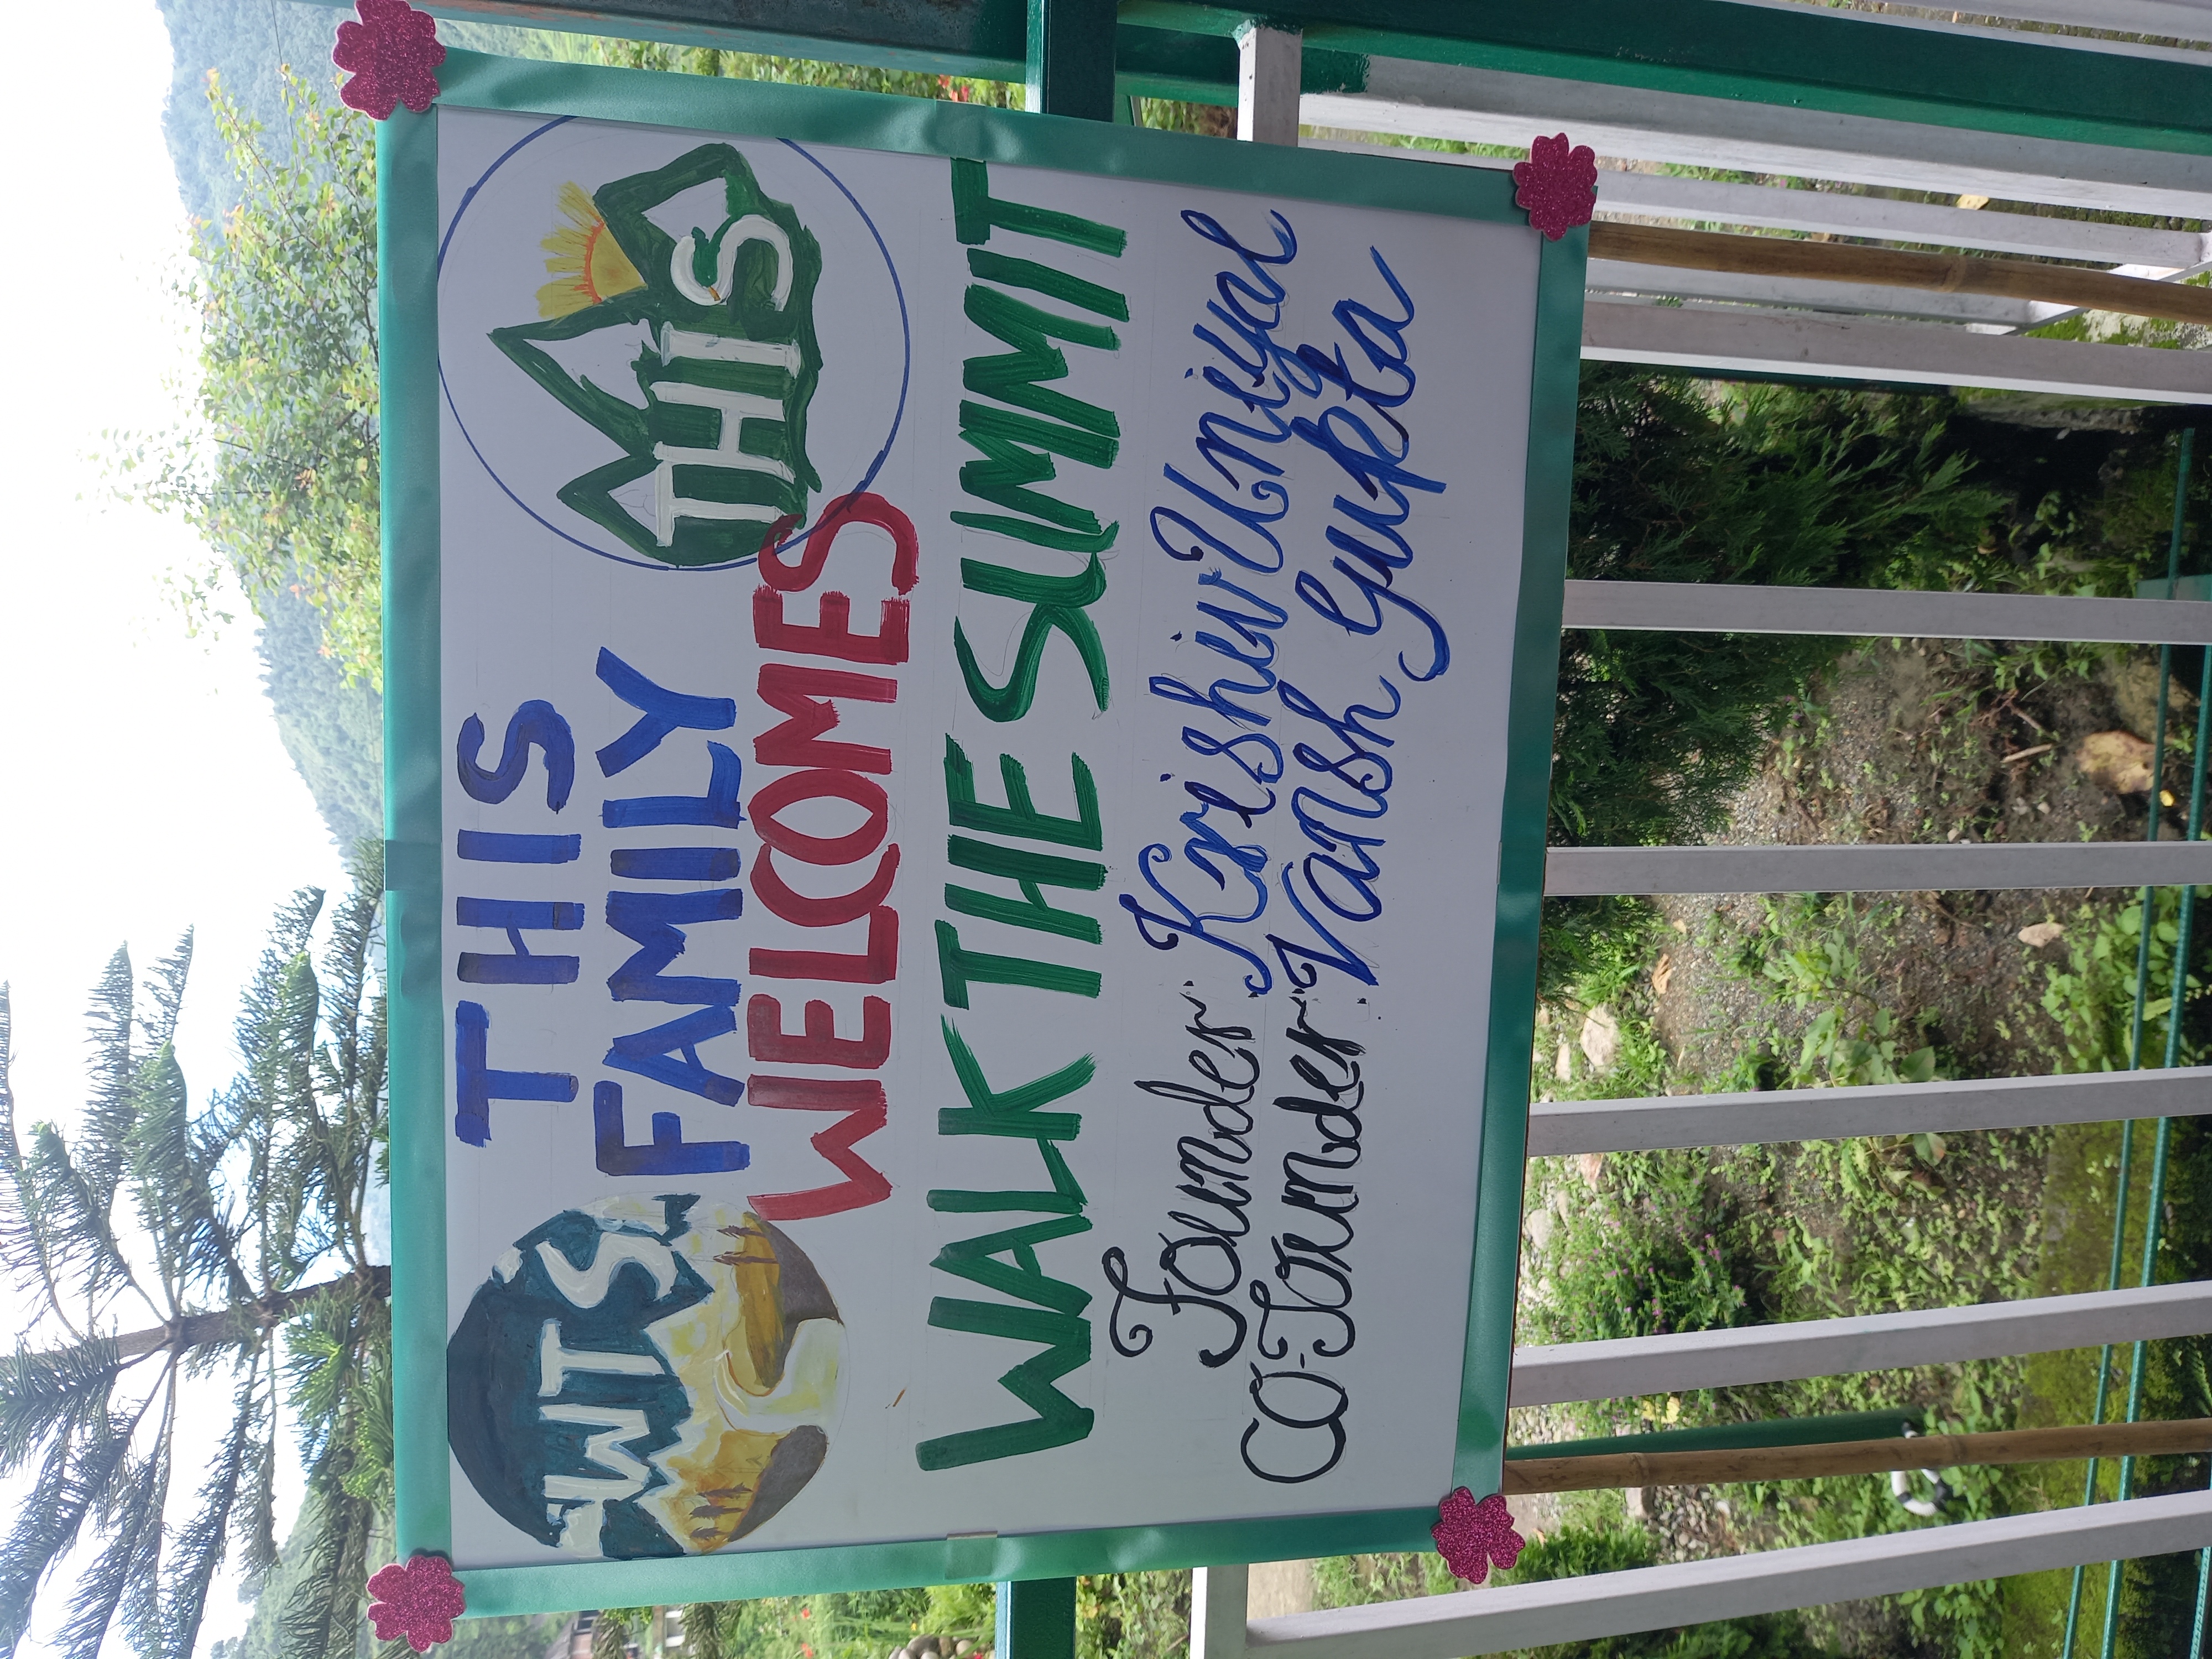 WTS
THIS
FAMILY
THIS
WELCOMES
WALK THE SUMMIT
Founder: Krishiv Uniyal
CO-Founder: Vansh Gupta